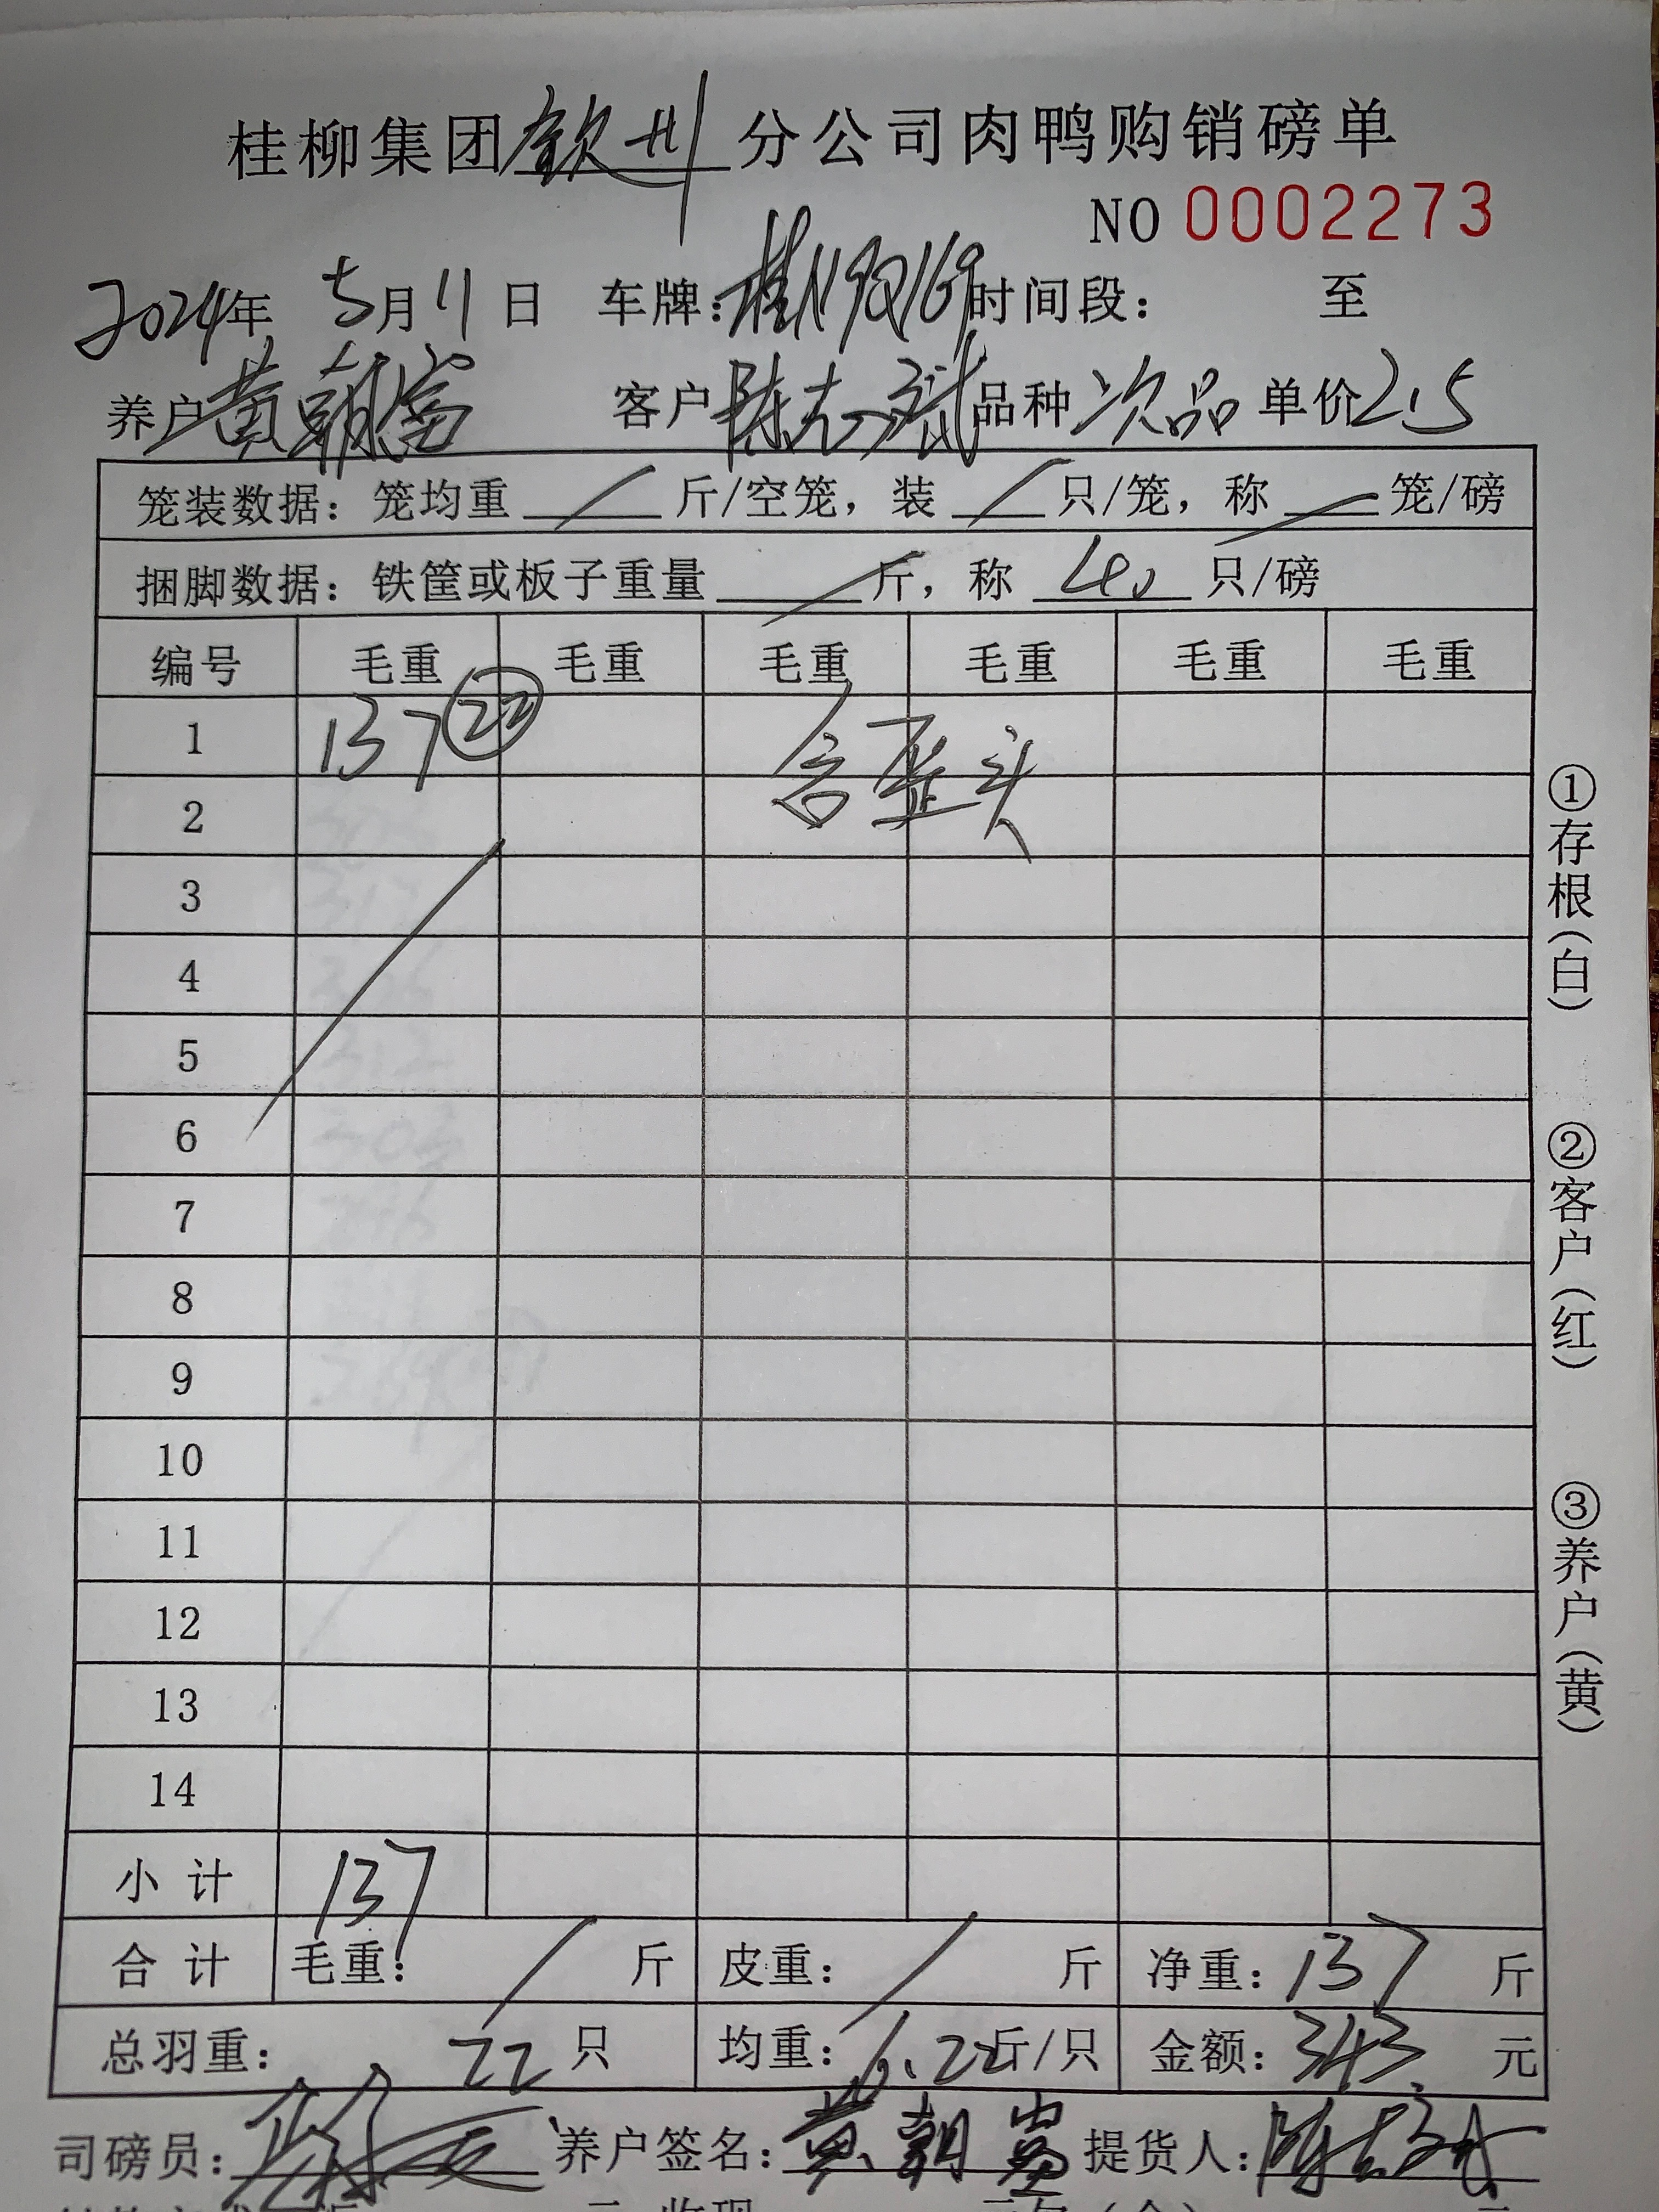 桂柳集团钦州分公司肉鸭购销磅单
NO 0002273
2024年 5月 11日 车牌：桂N9Q169 时间段： 至
养户 黄朝富 客户 陈志斌 品种 次品 单价 2.5
笼装数据：笼均重 / 斤/空笼，装 / 只/笼，称 / 笼/磅
捆脚数据：铁筐或板子重量 / 斤，称 40 只/磅
编号 毛重 毛重 毛重 毛重 毛重 毛重
1 137 22 含歪头
2
3
4
5
6
7
8
9
10
11
12
13
14
小计 137
合计 毛重： / 斤 皮重： / 斤 净重：137 斤
总羽重： 22 只 均重：6.22斤/只 金额：343 元
司磅员： 养户签名：黄朝富 提货人：陈志斌
①存根（白）
②客户（红）
③养户（黄）